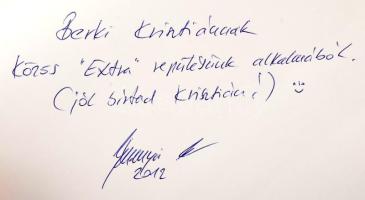 Berki Krisztiánnak
közös "Extra" repülésünk alkalmából.
(jól bírtad Krisztián!) :)
2012